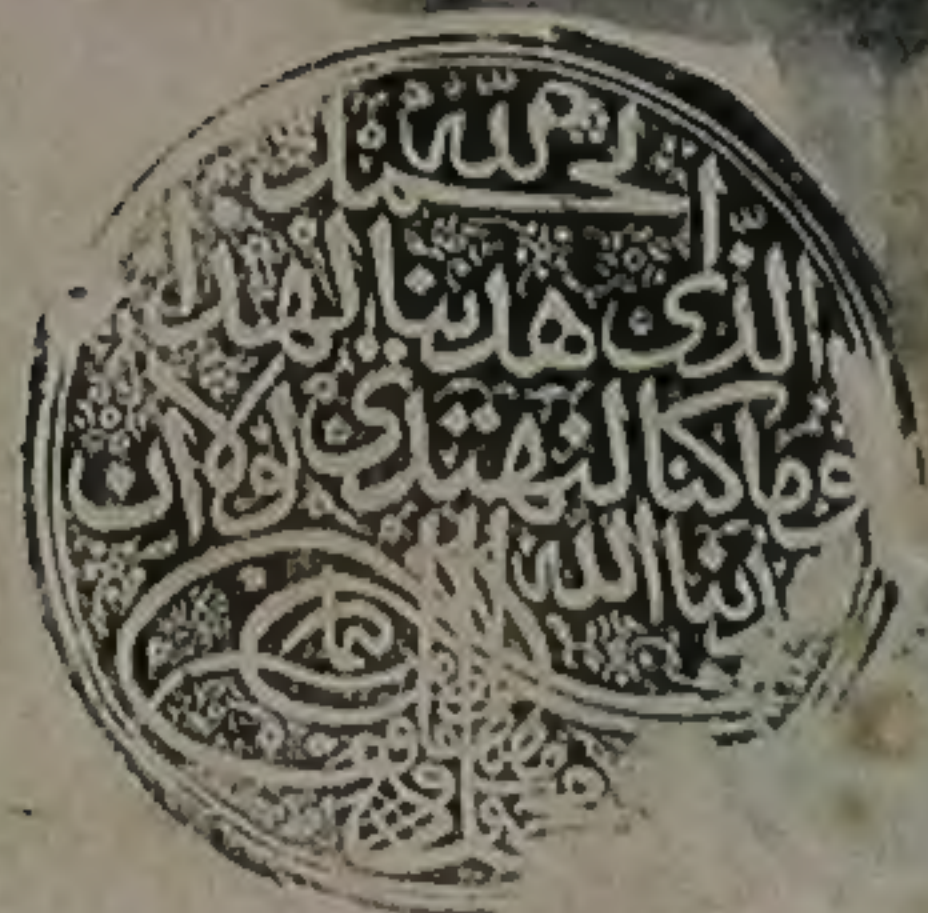 الحمد لله
الذّى هدينا لهذا
وما كنا لنهتدى لولا ان
هدينا الله